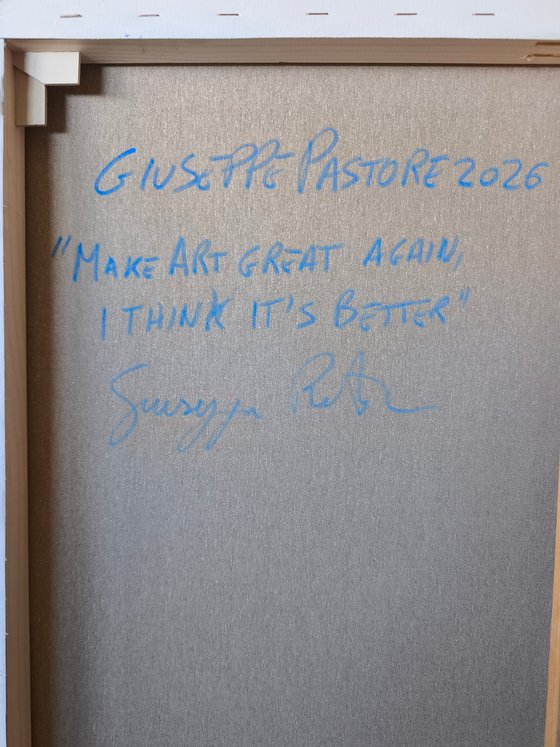 GIUSEPPE PASTORE 2026
"MAKE ART GREAT AGAIN,
I THINK IT'S BETTER"